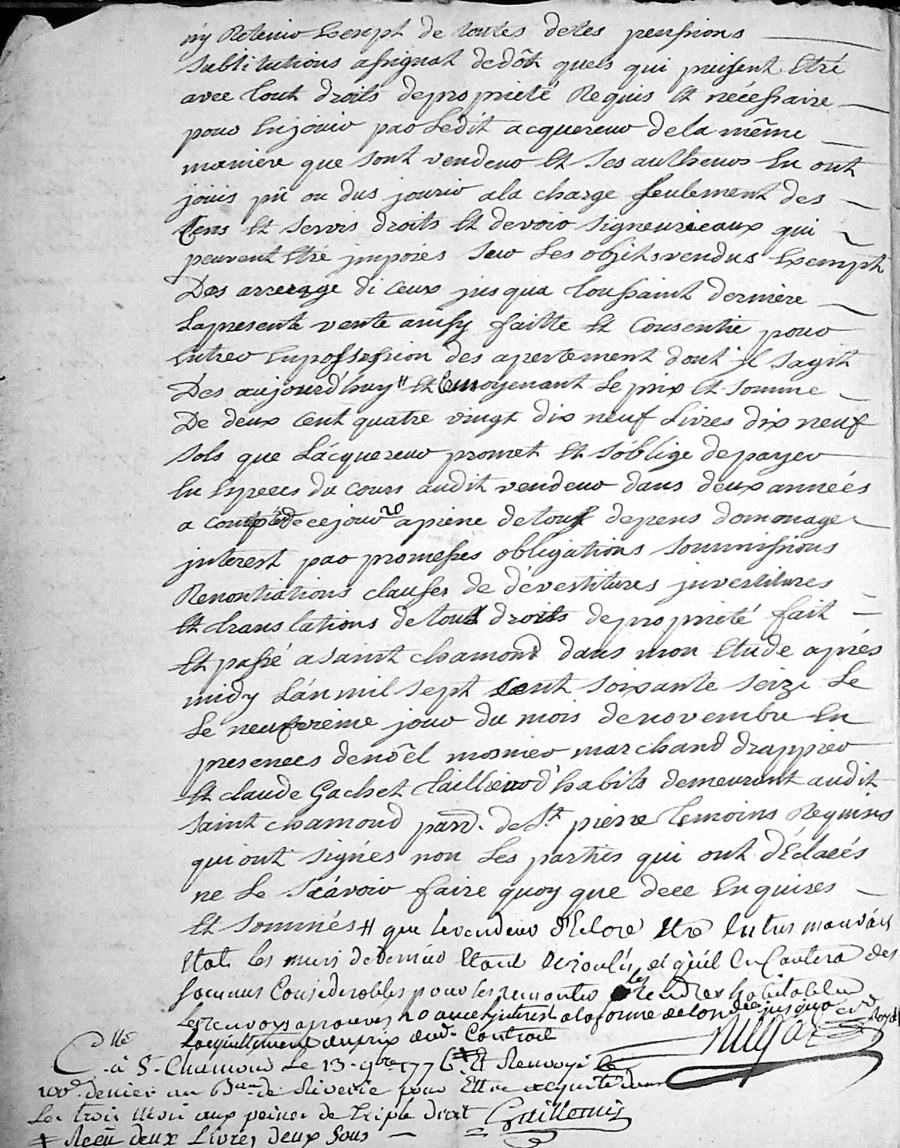 ny Retenir Exempt de toutes detes penssions
sublitutions assignat dedôt quels qui puissent Etré
avec tout droits depropriété Requis Et nécessaire
pour Enjouir par Ledit acquereur dela même
maniere que sont vendeur Et ses autheurs En ont
jouis pû ou dus jouir ala charge seulement des
Cens Et servis droits Et devoir signeurieaux qui
peuvent Etré imposés sur Les objets vendus Exempt
Des arrerage di ceux jusqua toussaint derniere
La presente vente ainsy faitte Et Consentie pour
Entrer En possession des apartement dont il sagit
Des aujourd'huy # Et moyenant Le prix Et somme
De deux cent quatre vingt dix neuf Livres dix neuf
sols que Lácquereur promet Et s'oblige depayer
En Especes du cours audit vendeur dans deux années
a compté de ce jour apiene detous depens domonage
interest par promesses obligations soummissions
Renontiations clauses de dévestitures investitures
Et translations de tout droits depropriété fait
Et passé a saint chamond dans mon Etude aprés
midy L'an mil sept Cent soixante seize Le
Le neufvieme jour du mois denovembre En
presences denoël mosnier marchand drappier
Et claude Gachet tailleur d'habits demeurant audit
saint chamond parr. de St. pierre temoins Requis
qui ont signés non Les parties qui ont déclarés
ne Le sçavoir faire quoy que de ce Enquises
Et sommés # que le vendeur d'Eclore Etre En tres mauvais
Etat, Les murs de derrier Etant Ecroulés, et qu'il En Coutera des
sommes Considerables pour les remonter les rendre habitables
Les renvoys aprouvés avec interest a la forme de lordce jusqua
Lacquittement du prix dud. Contrat
Clle à St. Chamond le 13 9bre 1776 # Et Renvoyé le
100e denier au Bau de Riverie pour Etre acquité dans
Les trois Mois aux peines de triple droit
# Reçu deux Livres deux Sous